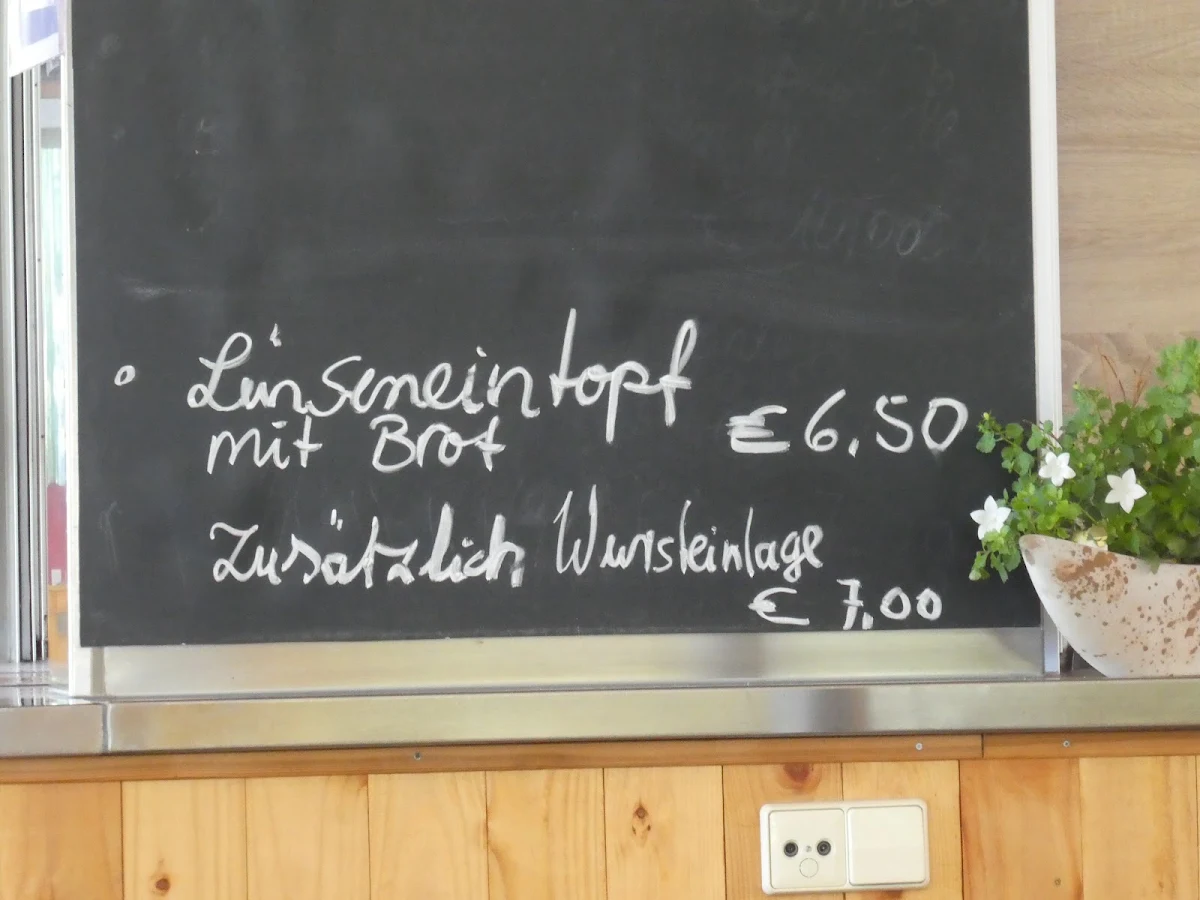 Linseneintopf
mit Brot € 6.50
Zusätzlich Wursteinlage
€ 7,00